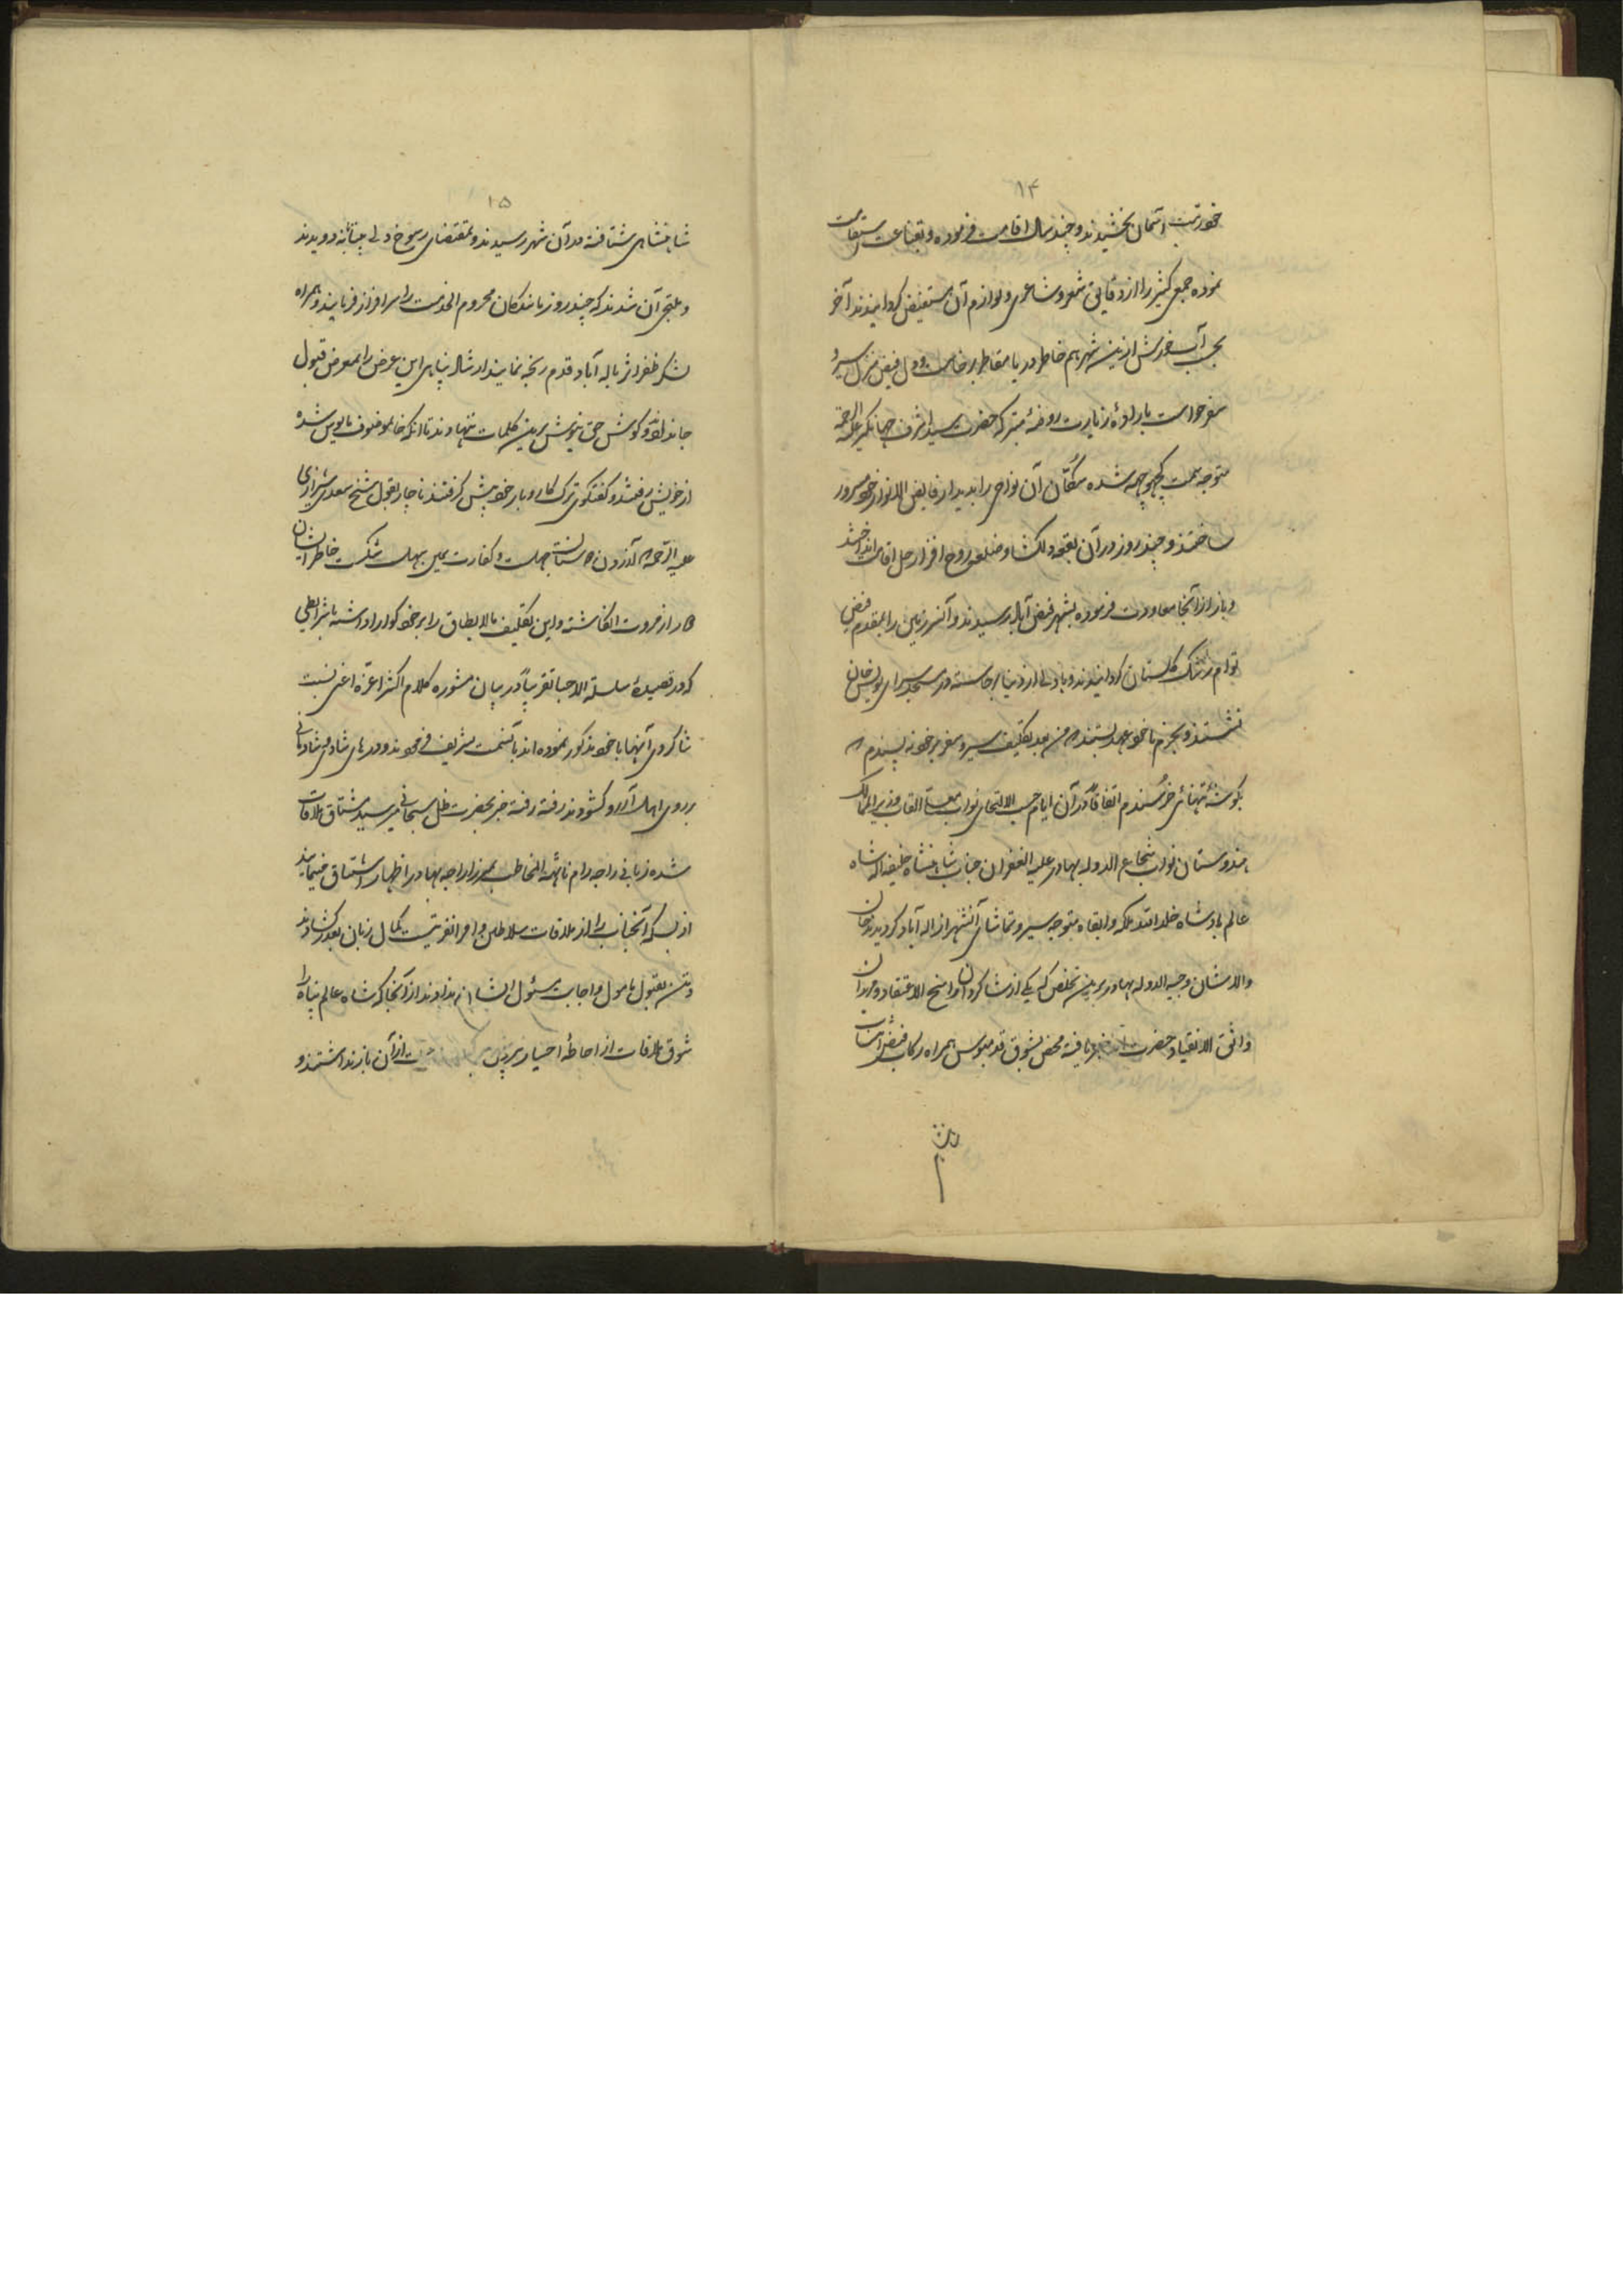 ۱۴
خود رتبت آسمان بخشیدند و چند سال اقامت فرموده و بقناعت استقامت
نموده جمع کثیر را از دقایق شعر و شاعری و لوازم آن مستفیض گردانیدند آخر
بحسب آب خورش ازین شهر هم خاطر دریا مقاطر برخاست و دل فیض منزل سیر و
سفر خواست باراده زیارت روضهٔ متبرکه حضرت سید اشرف جهانگیر علیه الرحمه
متوجه سمت کچهوچهه شده سکّان آن نواحی را بدیدار فایض الانوار خود مسرور
ساختند و چند روز در آن بقعه دلکشا و ضلعه روح افزا رحل اقامت انداختند
و باز از آنجا معاودت فرموده بشهر فیض آباد رسیدند و آنسرزمین را بمقدم فیض
توام رشک گلستان گردانیدند و با دلی از دنیا برخاسته در مسجد سرای یونس خان
نشستند و بجزم با خود عهد بستند که من بعد تکلیف سیر و سفر بر خود نه پسندم که
بگوشهٔ تنهائی خرسندم اتفاقاً در آن ایام حسب الالتجای نواب القاب وزیر الممالک
هندوستان نواب شجاع الدوله بهادر علیه الغفران جناب شاهنشاه خلیفه اله شاه
عالم بادشاه خلد الله ملکه و ابقاه متوجه سیر و تماشای آنشهر از اله آباد گردیدند خان
والا شان وجیه الدوله بهادر بدین تخلص که یکی از شاگردان راسخ الاعتقاد و مریدان
واثق الانقیاد حضرت خبر یافته محض بشوق قدمبوس همراه رکاب فیض انتساب
شاهنشاهی
۱۵
شاهنشاهی شتافته در آن شهر رسیدند و بمقتضای رسوخ دلی بیتابانه دویدند
و ملتجی آن شدند که چند روز ماندکان محروم الخدمت را سرافراز فرمایند و همراه
لشکر ظفر اثر باله آباد قدم رنجه نمایند ارشاد پناهی این عرض را بمعرض قبول
جا ندادند و گوش حق نیوش بدین کلمات ننهادند تا آنکه خانموصوف مایوس شده
از خویش رفتند و گفتگوی ترک کار و بار خود پیش گرفتند ناچار بقول شیخ سعدی شیرازی
علیه الرحمه که آزردن دوستان جهلست و کفارت یمین سهل شکست خاطر ایشان
دور از مروت انگاشته و این تکلیف مالایطاق را بر خود گوارا داشته بشرایطی
که در قصیدهٔ سلسلة الاحبا تقریباً در بیان مشوره کلام اکثر اعزه اعنی نسبت
شاگردی آنها با خود مذکور نموده اند بآنسمت تشریف فرمودند و درهای شادی و شادمانی
بر روی اهل آرزو گشودند رفته رفته خبر بحضرت ظل سبحانی رسید مشتاق ملاقات
شده زبانی راجه رام ناتهه المخاطب بمیرزا راجه بهادر اظهار اشتیاق فرمایند
از بسکه آنجناب را از ملاقات سلاطین و امرا نفرتیست بکمال زبان بعذر گشادند
و تن بقبول مامول و اجابت مسئول ایشان ندادند از آنجا که شاه عالم پناه را
شوق ملاقات از احاطهٔ اختیار بیرون از آن باز نداشتند و